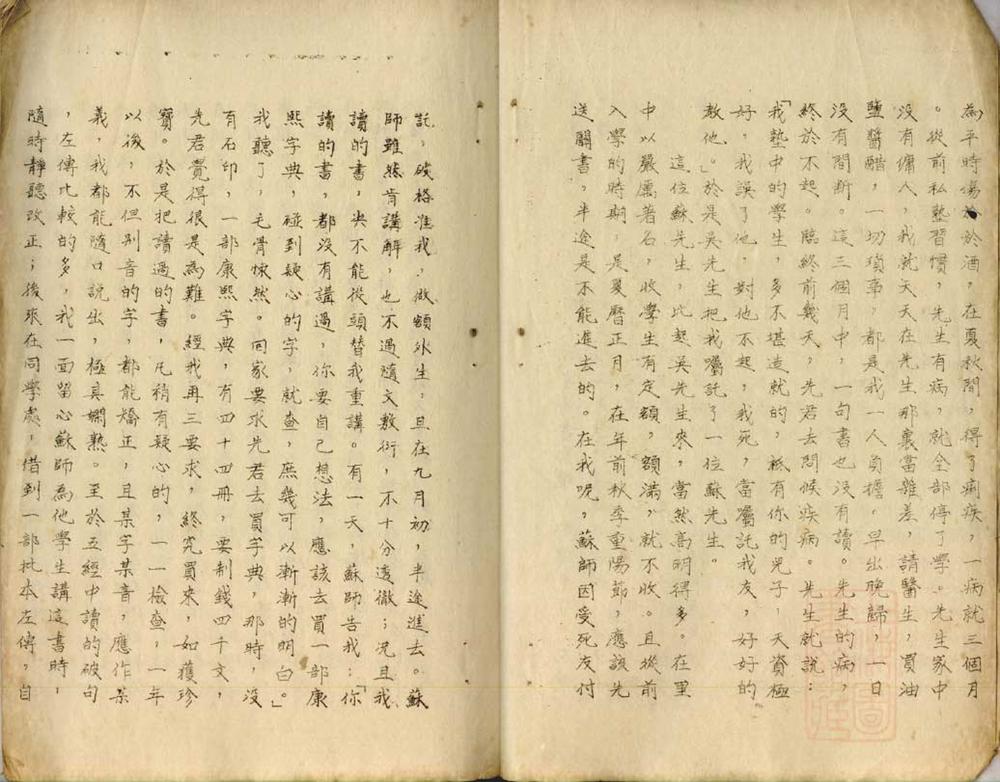 為平時傷於酒，在夏秋間，得了痢疾，一病就三個月
。從前私塾習慣，先生有病，就全部停了學。先生家中
沒有傭人，我就天天在先生那裏當雜差，請醫生，買油
鹽醬醋，一切瑣事，都是我一人負擔。早出晚歸，一日
沒有間斷。這三個月中，一句書也沒有讀。先生的病，
終於不起。臨終前幾天，先君去問候疾病。先生就說：
「我塾中的學生，多不堪造就的，祗有你的兒子，天資極
好，我誤了他，對他不起，我死，當囑託我友，好好的
教他。」於是吳先生把我囑託了一位蘇先生。
這位蘇先生，比起吳先生來，當然高明得多。在里
中以嚴厲著名，收學生有定額，額滿，就不收。且從前
入學的時期，是夏曆正月，在年前秋季重陽節，應該先
送關書，半途是不能進去的。在我呢，蘇師因受死友付
託，破格准我，做額外生，且在九月初，半途進去。蘇
師雖然肯講解，也不過隨文敷衍，不十分透徹；況且我
讀的書，決不能從頭替我重講。有一天，蘇師告我：「你
讀的書，都沒有講過，你要自己想法，應該去買一部康
熙字典，碰到疑心的字，就查，庶幾可以漸漸的明白。」
我聽了，毛骨悚然。回家要求先君去買字典，那時，沒
有石印，一部康熙字典，有四十四冊，要制錢四千文，
先君覺得很是為難。經我再三要求，終究買來，如獲珍
寶。於是把讀過的書，凡稍有疑心的，一一檢查，一年
以後，不但別音的字，都能矯正，且某字某音，應作某
義，我都能隨口說出，極真嫻熟。至於五經中讀的破句
，左傳比較的多，我一面留心蘇師為他學生講這書時，
隨時靜聽改正；後來在同學處，借到一部批本左傳，自